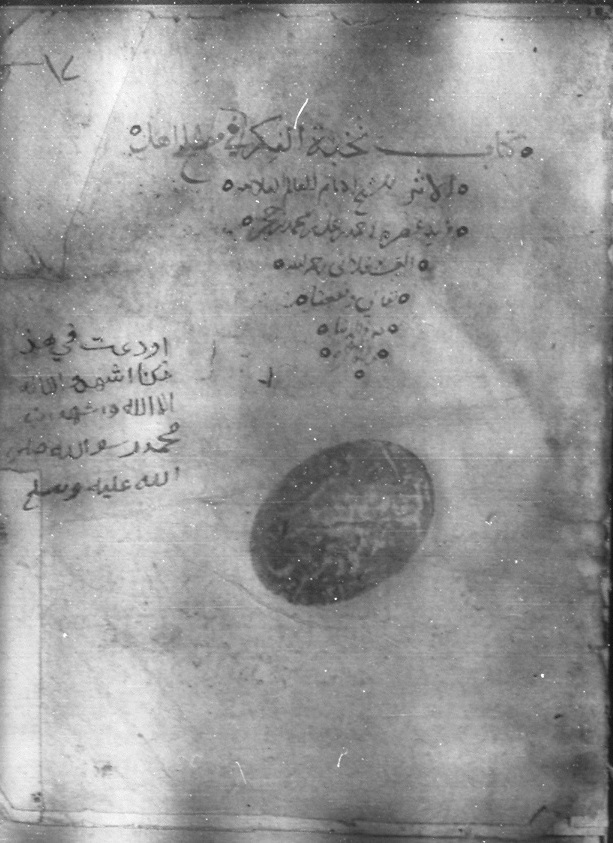 ١٧
كتاب نخبة الفكر في مصطلح اهل
الاثر للشيخ الامام العالم العلامه
احمد بن علي بن محمد بن حجر
العسقلاني رحمه الله
تعالى ونفعنا
به
اودعت في هذ
اشهد ان لا اله
الا الله واشهد ان
محمد رسو الله صلى
الله عليه وسلم